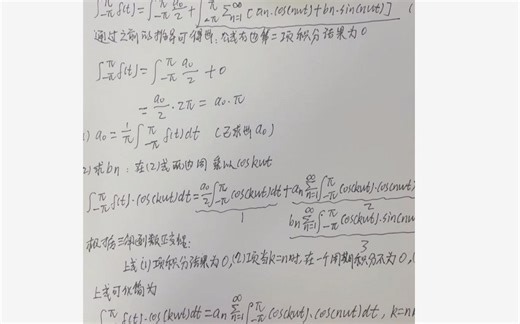 ∫_{-π}^{π} f(t) = ∫_{-π}^{π} a0/2 + ∫_{-π}^{π} Σ_{n=1}^{∞} [an·cos(nωt)+bn·sin(nωt)]
通过之前的推导可得出: 上式右边第二项积分结果为0
∫_{-π}^{π} f(t) = ∫_{-π}^{π} a0/2 + 0
= a0/2 · 2π = a0·π
) a0 = 1/π ∫_{-π}^{π} f(t)dt (已求出a0)
2) 求bn: 在(2)式两边同乘以coskωt
∫_{-π}^{π} f(t)·cos(kωt)dt = a0/2 ∫_{-π}^{π} cos(kωt)dt + an Σ_{n=1}^{∞} ∫_{-π}^{π} cos(kωt)·cos(nωt)
1 2
bn Σ_{n=1}^{∞} ∫_{-π}^{π} cos(kωt)·sin(nω
3
根据三角函数正交性:
上式(1)项积分结果为0,(2)项当k=n时,在一个周期积分不为0,(
上式可化简为
∫_{-π}^{π} f(t)·cos(kωt)dt = an Σ_{n=1}^{∞} ∫_{-π}^{π} cos(kωt)·cos(nωt)dt, k=n